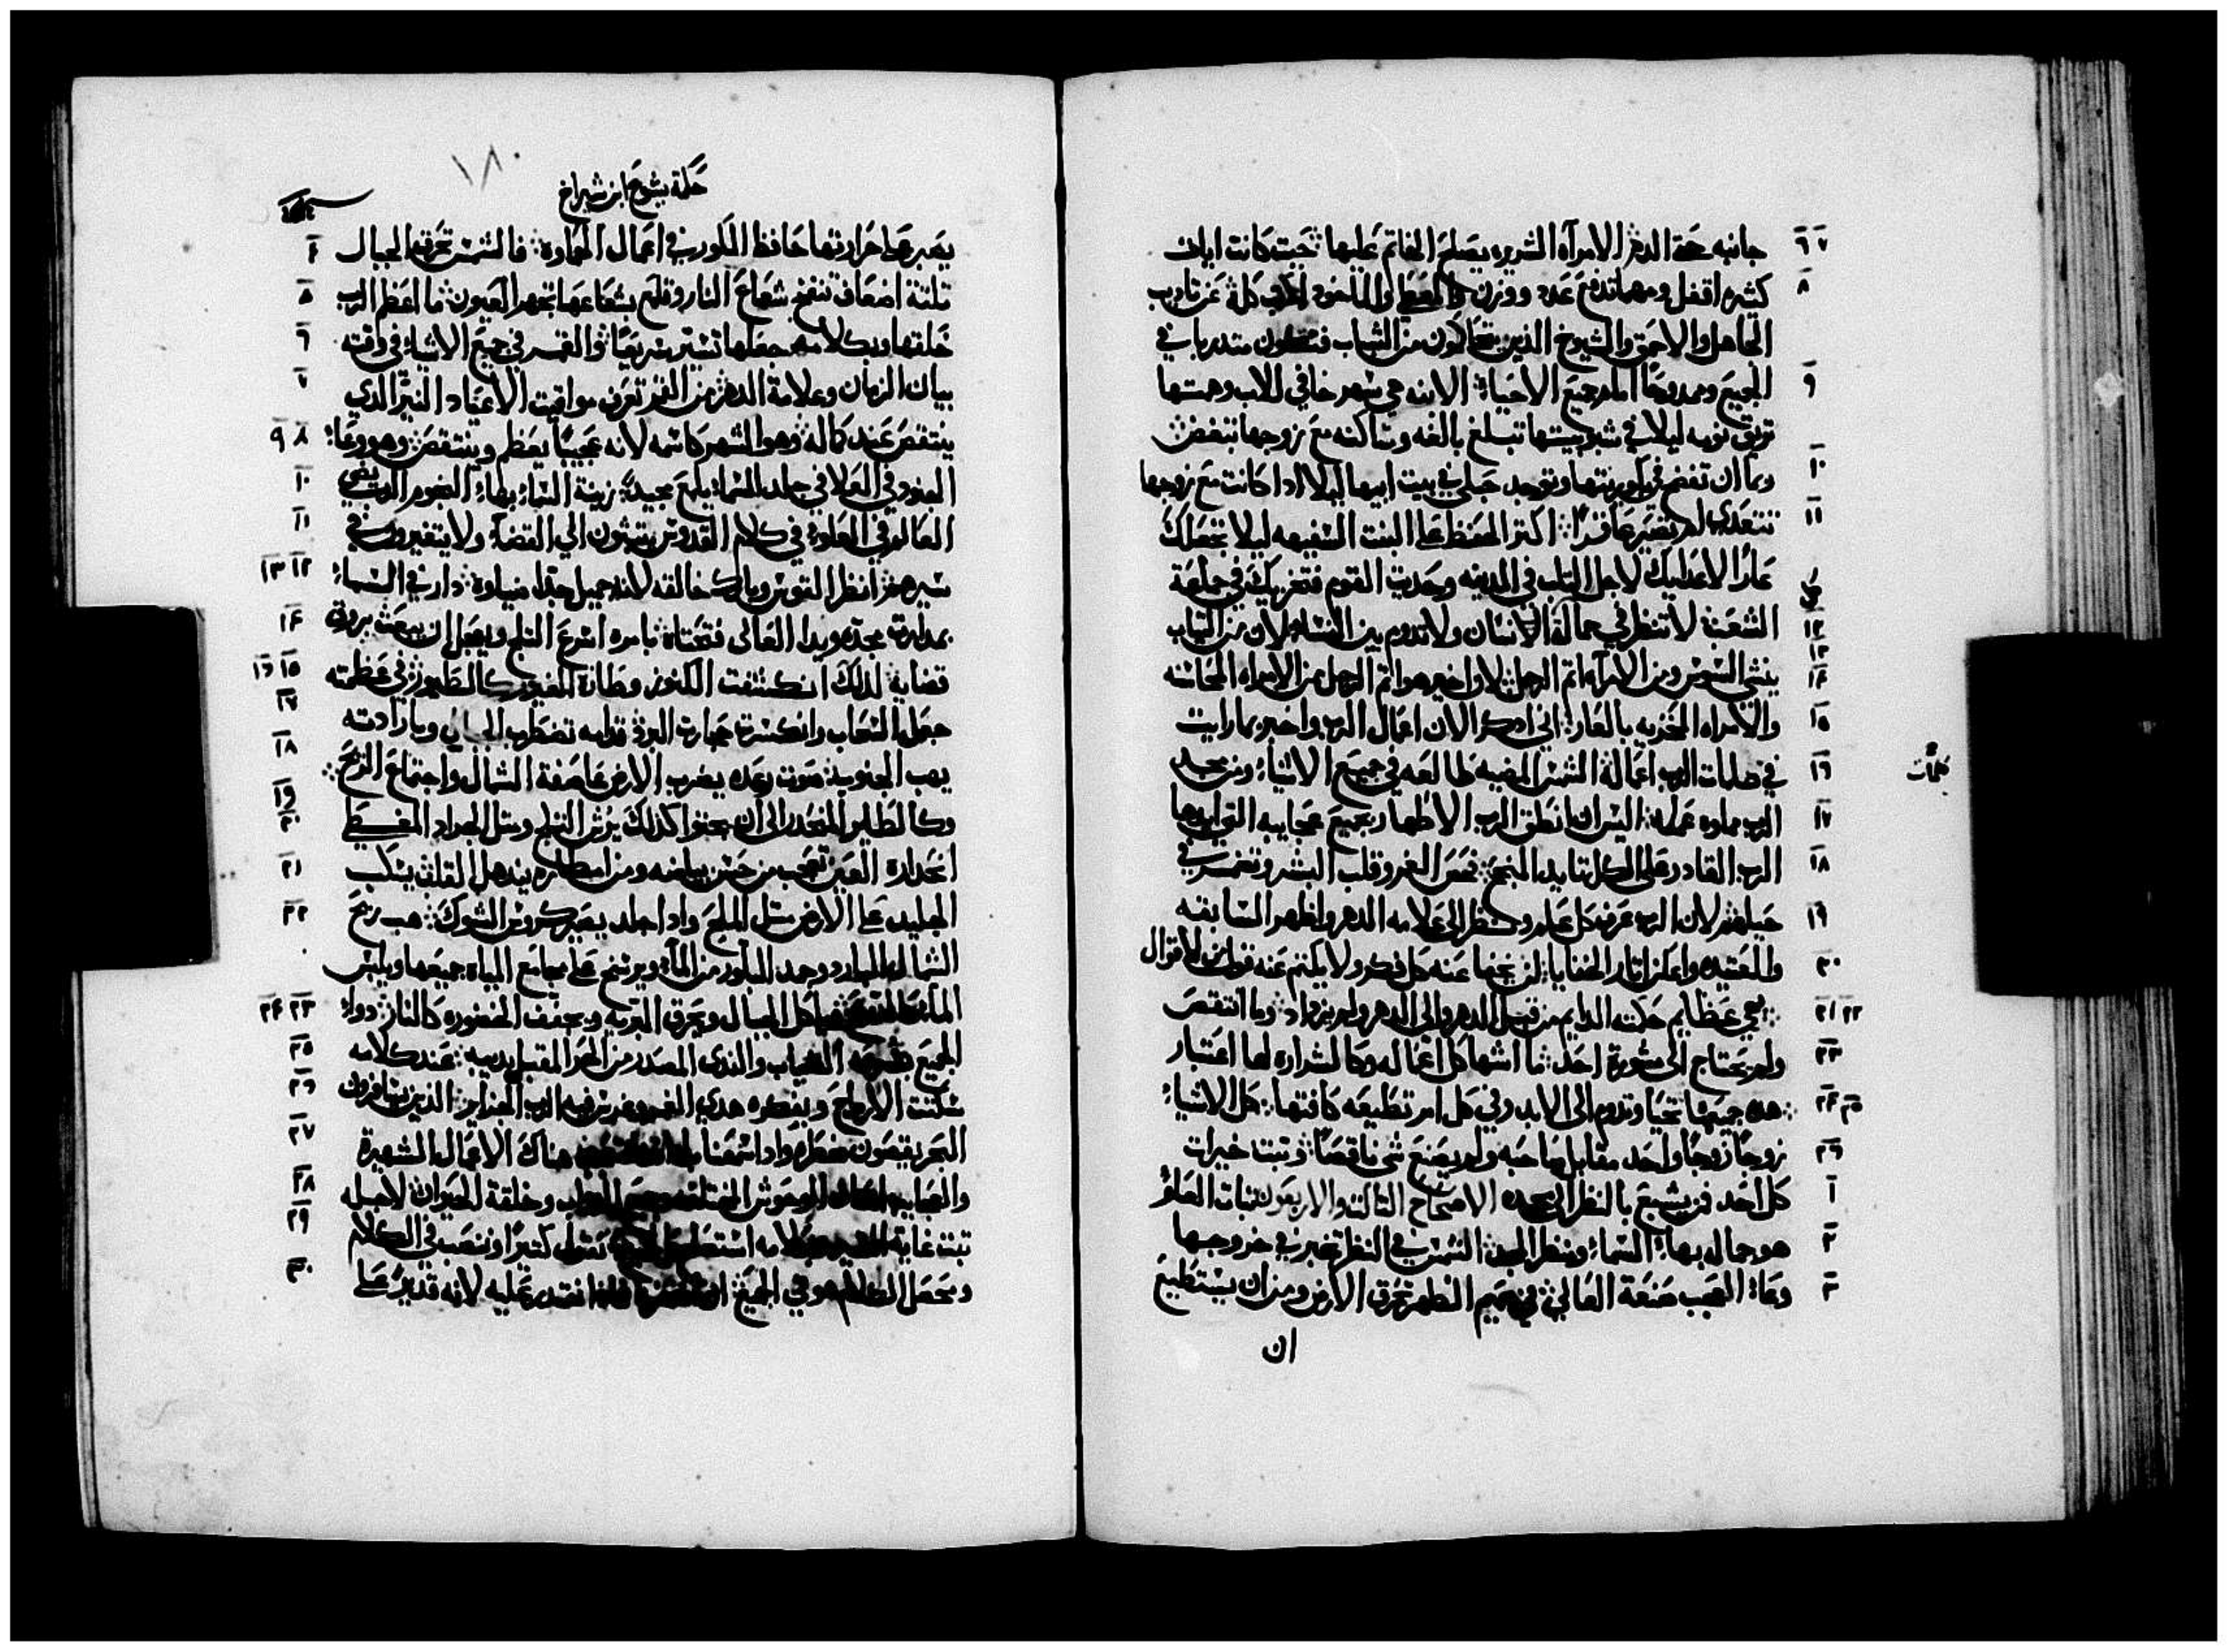 ٦ ٧ جانبه حمة الدهر الامرآه الشريره يصلح الخاتم عليها حيت كانت اياد
٨ كثيره اقفل ومهما تدفع عدد ووزن والعطا والماخود اكتب كله عن تاديب
الجاهل والاحمق والشيوخ الذين يتحاكمون من الشباب فتكون متدربا في
٩ الجميع وممدوحًا امام جميع الاحياء الابنه هي سهر خافي للاب وهمتها
تزيق نومه ليلا في شبوبيتها تبلغ بالغه وساكنه مع زوجها تبغض
١٠ ربما ان تفضح في بكوريتها وتوجد حبلي في بيت ابيها ليلا ادا كانت مع زوجها
١١ تتعدي او تصير عاقرًا اكتر الحفظ علي البنت السفيهه ليلا تجعلك
عارًا لاعدايك لاجل التلب في المدينه وحديت القوم فتخزيك في جماعة
١٢ الشعب لا تنظر في جمالة الانسان ولا تدوم بين النساء لان من التياب
١٣
١٤ ينشي السوس ومن الامرآه اتم الرجل لان اخير هو اتم الرجل من الامراه المحاسنه
١٥ والامراه المخزيه بالعار اني ادكر الان اعمال الرب واخبر بما رايت
١٦ في كلمات الرب اعماله الشمس المضيه طالعه في جميع الاشياء ومن مجد
كلمات
١٧ الرب مملوه عمله اليس ان انطق الرب الاطهار بجميع عجايبه التي ايدها
١٨ الرب القادر على الكل تايد المجد فحص الغمر وقلب البشر وتفرس في
١٩ حيلهم لان الرب عرف كل علم ونظر الى علامه الدهر واظهر السابقه
٢٠ والعتيده واعلن اتار الخفايا لن يخفا عنه كل فكر ولا يكتم عنه قول من الاقوال
٢١ ٢٢ هي عظايم حكمته الدايم من قبل الدهر والى الدهر ولم يزداد وما انتقص
٢٣ ولم يحتاج الى مشورة احد ما اشها كل اعماله وكالشراره لها اعتبار
٢٤ ٢٥ هده جميعها تحيا وتدوم الى الابد وفي كل امر تطيعه كافتها كل الاشياء
٢٦ زوجًا زوجًا واحد مقابل صاحبه ولم يصنع شي ناقصًا وتبت خيرات
١ كل احد فمن يشبع بالنظر الى مجده الاصحاح التالت والاربعون تبات العلو
٢ هو جماله بهاء السماء ومنظر المجد الشمس في النظر تخبر في خروجها
٣ وعاء العجب صنعة العالي في صميم الظهر تحرق الارض ومن ان يستطيع
ان
حكمة يشوع ابن شيراخ
١٨٠
٤ يصبر على حرارتها حافظ الكور في اعمال الحراره فالشمس تحرق الجبال
٥ تلتة اضعاف تنفخ شعاع النار وتلمع بشعاعها تجهر العيون ما اعظم الرب
٦ خلقها وبكلامه جعلها تسير سريعًا والقمر في جميع الاشياء في وقته
٧ بيان الزمان وعلامة الدهر من القمر تعرف مواقيت الاعياد النير الذي
٨ ٩ ينتقص عند كماله وهو الشهر كاسمه لانه عجيبًا يعظم وينتقص وهو وعاء
١٠ الجنود في العلا في جلد السماء يلمع مجيدًا زينة السماء بهاء النجوم الرب يضي
١١ العالم في العلو في كلام القدوس يتبتون الي القضاء ولا يتغيرون في
١٢ ١٣ سيرهم انظر القوس وبارك خالقه لانه جميل جدًا ضياوه دار في السماء
١٤ بمدارة مجده ويدا العالى فتحتاه بامره اسرع التلج ويعجل ان يبعت بروق
١٥ ١٦ قضايه لدلك انكشفت الكنوز وطارت الغيوم كالطيور في عظمته
١٧ جعل السحاب وانكسرت حجارة البرد قدامه تضطرب الجبال وبارادته
١٨ يهب الجنوب صوت رعده يضرب الارض عاصفة الشمال واجتماع الريح
١٩
٢٠ وكالطير المنحدر الى ان يجتوا كدلك يرش التلج ومتل الجراد المغطي
٢١ انحداره العين تعجب من حسن بياضه ومن امطاره يندهل القلب يسكب
٢٢ الجليد علي الارض متل الملح واد اجلد يصير كروس الشوك هب ريح
الشمال البارد وجمد البلور من الماء ويرسخ على مجامع المياه جميعها ويلبس
٢٣ ٢٤ الماء كل الجبال ويحرق البريه ويجفف الخضوره كالنار دواء
٢٥ الجميع السحاب والندى المصدر من الحر المقبل يديبه عند كلامه
٢٦ سكنت الارياح وبفكره هدي الغمر وغرس فيه الرب الجزاير الذين يسافرون
٢٧ البحر يقصون خطره واد اسمعنا هناك الاعمال الشهيرة
٢٨ والعجايب الوحوش المختلفه وخلقة الحيوان لاجله
٢٩ تبت غاية كلامه نقول كتيرًا وننصب في الكلام
٣٠ ومحصل الكلام هو في الجميع نقتدر عليه لانه قديرٌ على